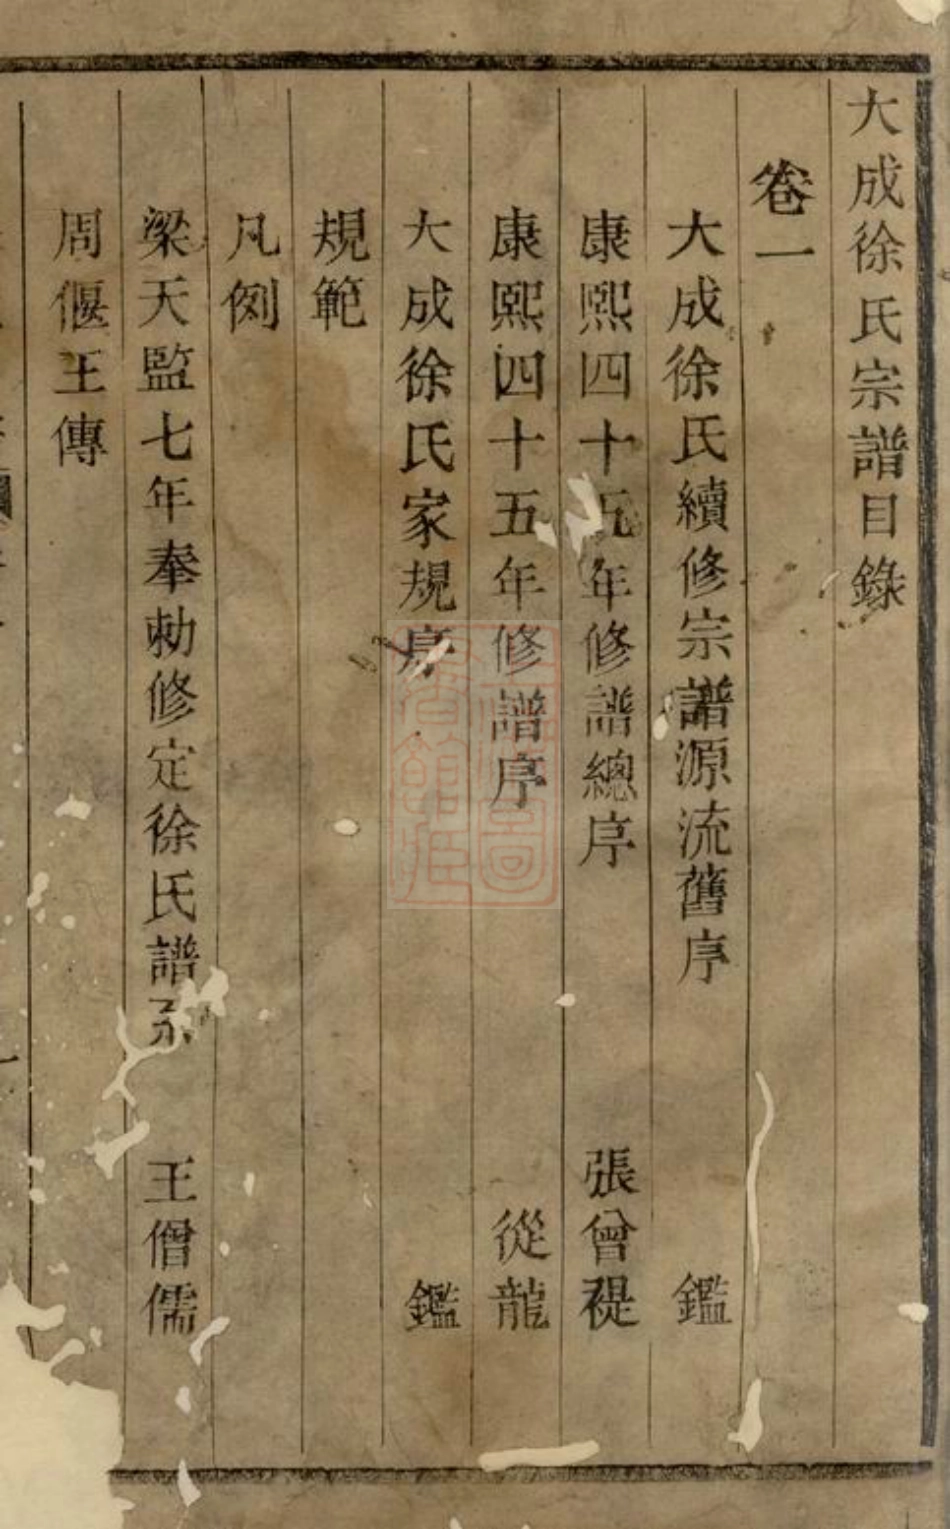 大成徐氏宗譜目錄
卷一
大成徐氏續修宗譜源流舊序 鑑
康熙四十五年修譜總序 張曾禔
康熙四十五年修譜序 從龍
大成徐氏家規序 鑑
規範
凡例
梁天監七年奉勅修定徐氏譜系 王僧儒
周偃王傳